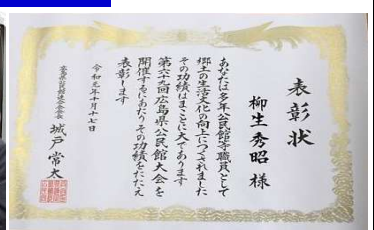 表彰状
柳生秀昭 様
あなたは多年公民館等職員として
郷土の生活文化の向上につくされました
その功績はまことに大であります
第六十九回広島県公民館大会を
開催するにあたりその功績をたたえ
表彰します
令和元年十月十七日
広島県公民館連合会会長 城戸常太